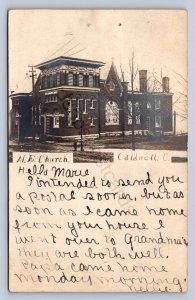 M.E. Church Caldwell, O.
Hello Marie
I intended to send you
a postal sooner, but as
soon as I came home
from your house I
went over to Grandma's
they are both well.
Papa came home
Monday morning.